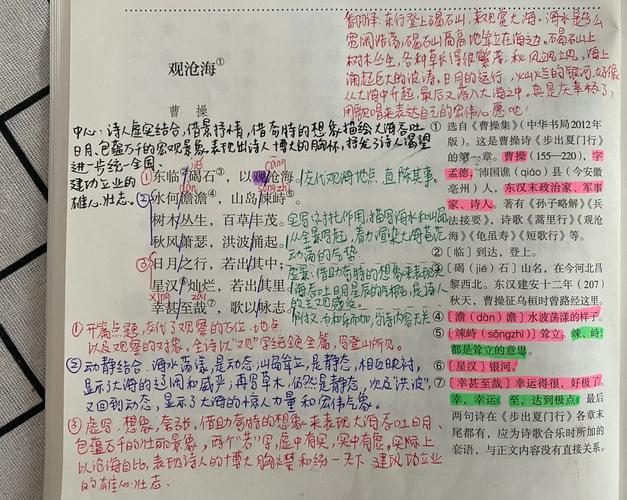 翻译：东行登上碣石山，来观赏大海。海水是多么
宽阔浩荡，碣石山高高地耸立在海边。碣石山上
树木丛生，各种草长得很繁茂。秋风飒飒，海上
涌起巨大的波涛。日月的运行，
从大海中升起，最后又落入大海之中。真是庆幸极了，
用歌唱来表达自己的宏伟心愿吧！
观沧海①
曹操
中心：诗人虚实结合，借景抒情，借奇特的想象描绘大海吞吐
日月、包蕴万千的宏观景象，表现出诗人博大的胸怀，抒发了诗人渴望
进一步统一全国、
建功立业的
雄心壮志。
jié
cāng
①东临碣石③，以观沧海。交代观海地点，直陈其事。
dàn
sǒng zhì
②水何澹澹④，山岛竦峙⑤。
树木丛生，百草丰茂。
秋风萧瑟，洪波涌起。
③日月之行，若出其中；
星汉灿烂，若出其里。
xìng
zāi
幸甚至哉⑦，歌以咏志。
实写：衬托作用，描写海水和山岛
从全景写起，着力渲染大海苍茫
动荡的气势
虚景：借助奇特的想象来表现
大海吞吐日月星辰的气概，是诗人
附文，为和乐而加，与诗内容无关
①开篇点题，交代了观察的方位、地点
以及观察的对象。全诗以“观”字统领全篇，写登山所见。
②动静结合，海水荡漾，是动态；山岛耸立，是静态，相互映衬，
显示了大海的辽阔和威严；再写草木，仍然是静态，次及洪波，
又回到动态，显示了大海的惊人力量和宏伟气象。
③虚写，想象，夸张，借助奇特的想象来表现大海吞吐日月、
包蕴万千的壮丽景象，两个“若”字，虚中有实，实中有虚，实际上
以沧海自比，表现诗人的博大胸襟和统一天下、建功立业
的雄心壮志。
① 选自《曹操集》（中华书局2012年
版）。这是曹操诗《步出夏门行》
的第一章。曹操（155—220），字
孟德，沛国谯（qiáo）县（今安徽
亳州）人，东汉末政治家、军事
家、诗人。著有《孙子略解》《兵
法接要》，诗歌《蒿里行》《观沧
海》《龟虽寿》《短歌行》等。
② 〔临〕到达，登上。
③ 〔碣（jié）石〕山名，在今河北昌
黎西北。东汉建安十二年（207）
秋天，曹操征乌桓时曾路经这里。
④ 〔澹（dàn）澹〕水波荡漾的样子。
⑤ 〔竦峙（sǒngzhì）〕耸立。竦、峙，
都是耸立的意思。
⑥ 〔星汉〕银河。
⑦ 〔幸甚至哉〕幸运得很，好极了。
幸，幸运。至，达到极点。最后
两句诗在《步出夏门行》各章末
尾都有，应为诗歌合乐时所加的
套语，与正文内容没有直接关系。